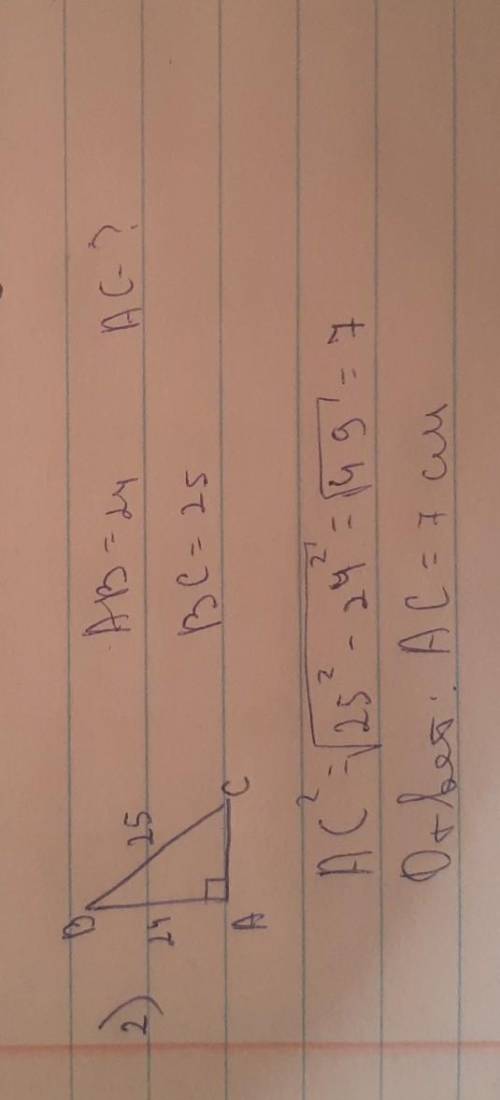 2)
B
24
25
A
C
AB = 24 AC - ?
BC = 25
AC² = √25² - 24² = √49 = 7
Ответ: AC = 7 см